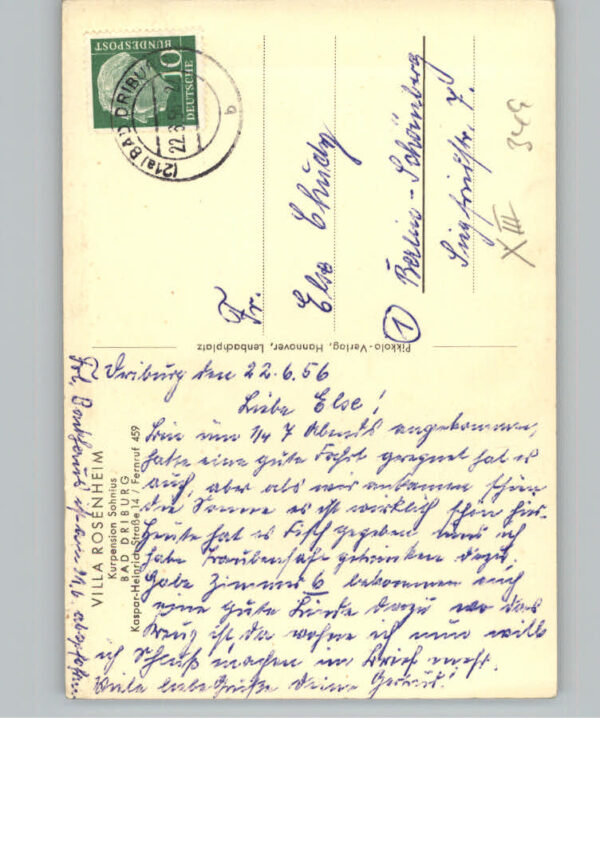 DEUTSCHE
BUNDESPOST
10
(21a) BAD DRIBURG
22.6.56
Fr.
Else Chudy
1 Berlin-Schöneberg
Siegfriedstr. 7.
XIII 349
Pikkolo-Verlag, Hannover, Lenbachplatz
VILLA ROSENHEIM
Kurpension Sohnius
BAD DRIBURG
Kaspar-Heinrich-Straße 14 / Fernruf 459
Driburg den 22.6.56
Liebe Else!
Bin um 1/4 7 Abends angekommen,
hatte eine gute Fahrt geregnet hat es
auch, aber als wir ankamen schien
die Sonne es ist wirklich schön hier.
Heute hat es Fisch gegeben und ich
habe Traubensaft getrunken dazu,
habe Zimmer 6 bekommen auch
eine gute dazu wo das
Kreuz ist, da wohne ich nun will
ich Schluß machen im Brief mehr.
Viele liebe Grüße Deine Gertrud!
Frl. ist am 21.6.